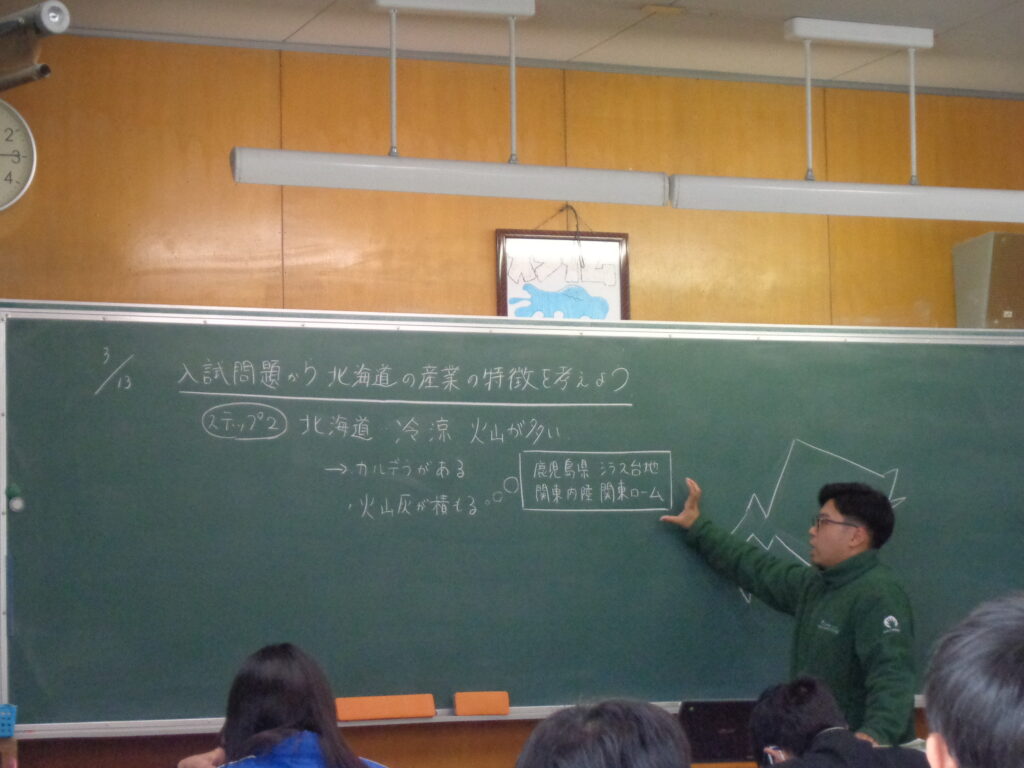 3/13
入試問題から北海道の産業の特徴を考えよう
ステップ2 北海道 冷涼 火山が多い
→カルデラがある
・火山灰が積もる
鹿児島県 シラス台地
関東内陸 関東ローム
2
3
4